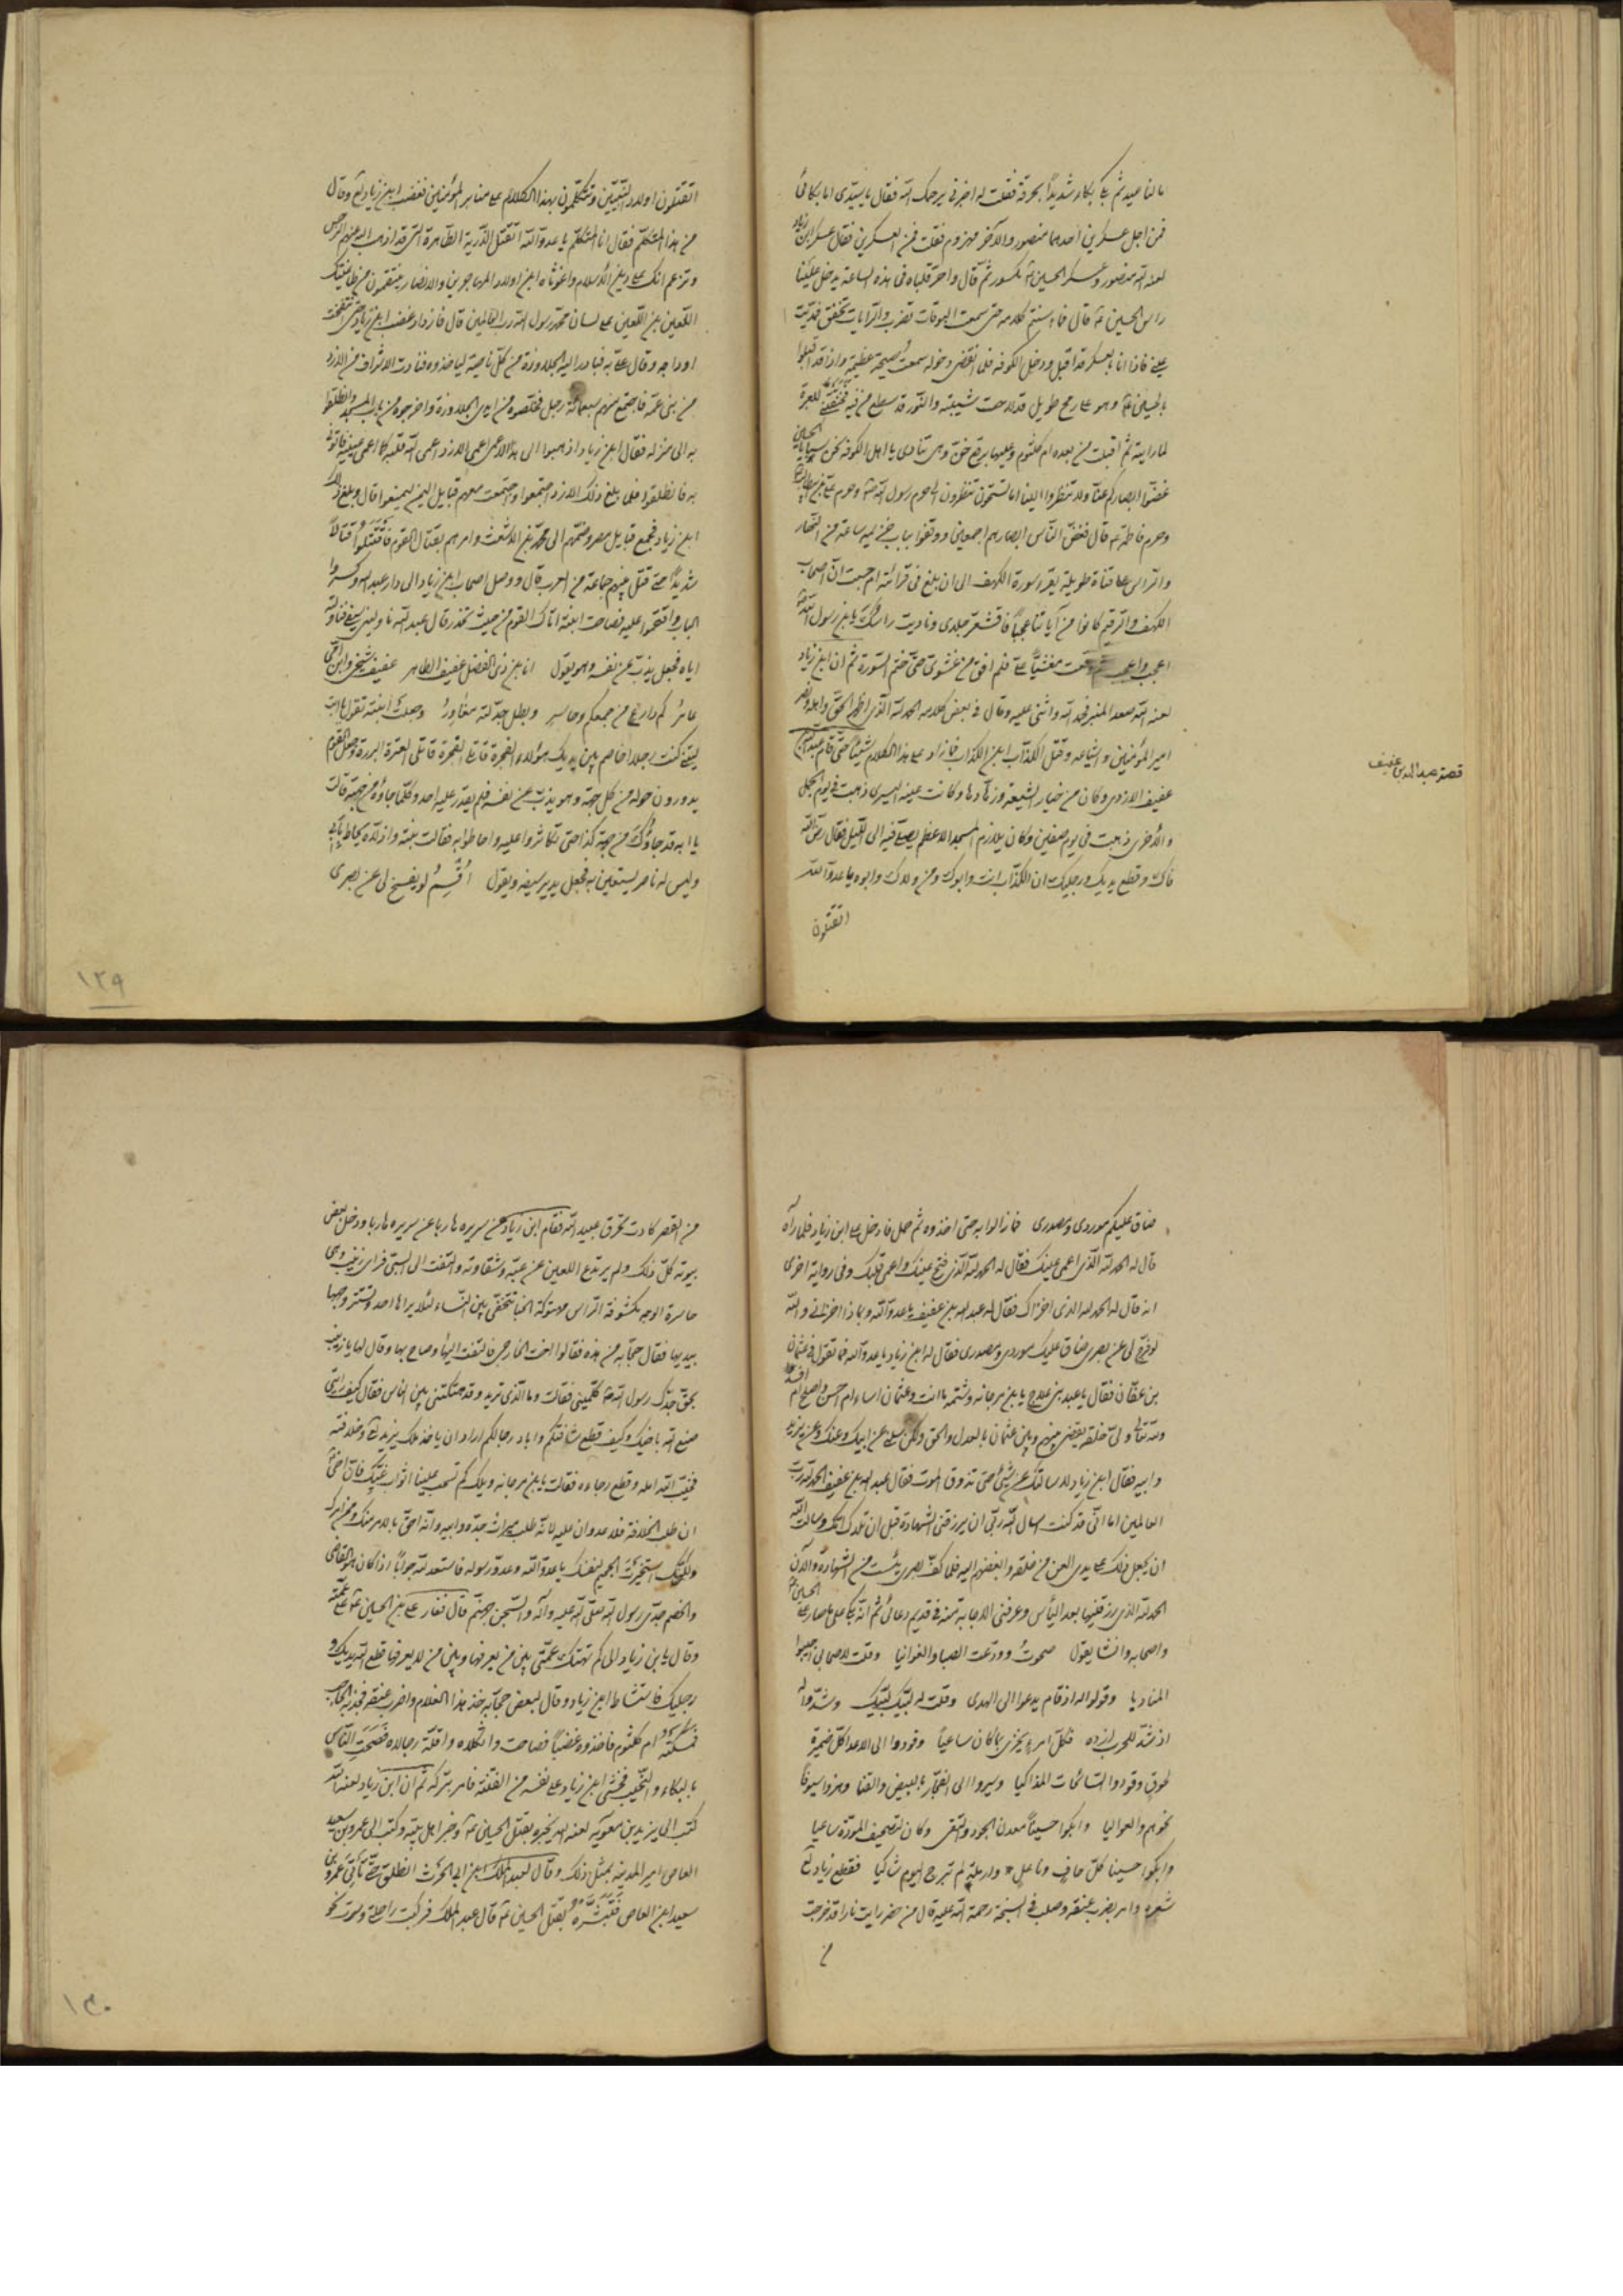 مالنا عيد ثم بكا بكاء شديدًا بحرقة فقلت له اخبرني يرحمك الله فقال يا سيدى اما بكائى
فمن اجل عسكرين احدهما منصور والآخر مهزوم فقلت فمن العسكرين فقال عسكر ابن زياد
لعنه الله منصور وعسكر الحسين ع مكسور ثم قال واحرّ قلباه فى هذه الساعة يدخل علينا
راس الحسين ع قال فما استتم كلامه حتى سمعت البوقات تضرب والرايات تخفق
فاذا انا بعسكر قد اقبل ودخل الكوفة فلما انقضى دخوله سمعت صيحة عظيمة واذا قد اقبلوا
بالحسين ع وهو على رمح طويل قد لاحت شيبته والنور قد سطع من فيه فخنقتنى العبرة
لما رايته ثم اقبلت من بعده ام كلثوم وعليها برقع خز وهى تنادى يا اهل الكوفة نحن سبايا الحسين
غضّوا ابصاركم عنّا ولا تنظروا الينا اما تستحون تنظرون الى حرم رسول الله ص وحرم على بن ابيطالب
وحرم فاطمة ع قال فغضّ الناس ابصارهم اجمعين ووقفوا بباب خزيمه ساعة من النهار
والراس على قناة طويلة يقرء سورة الكهف الى ان بلغ فى قرائته ام حسبت ان اصحاب
الكهف والرقيم كانوا من آياتنا عجباً فاقشعر جلدى وناديت راسك يا بن رسول الله
اعجب واعجب ثم وقعت مغشيًا على فلم افق من غشوتى حتى ختم السورة ثم ان ابن زياد
لعنه الله صعد المنبر فحمد الله واثنى عليه وقال فى بعض كلامه الحمد لله الذى اظهر الحق واهله ونصر
امير المؤمنين واشياعه وقتل الكذاب ابن الكذاب فما زاد على هذا الكلام شيئًا حتى قام عبدالله بن
عفيف الازدى وكان من خيار الشيعة وزهّادها وكانت عينه اليسرى ذهبت فى يوم الجمل
والاخرى ذهبت فى يوم صفين وكان يلازم المسجد الاعظم يصلى فيه الى الليل فقال رضّ الله
فاك وقطع يديك ورجليك ان الكذّاب انت وابوك ومن ولاك وابوه يا عدوّ الله
اتقتلون
قصة عبدالله بن عفيف
اتقتلون اولاد النبيين وتتكلمون بهذا الكلام على منابر المؤمنين فغضب ابن زياد لع وقال
من هذا المتكلم فقال انا المتكلم يا عدوّ الله اتقتل الذرية الطاهرة التى قد اذهب الله عنهم الرجس
وتزعم انك على دين الاسلام واغوثاه اين اولاد المهاجرين والانصار ينتقمون من طاغيتك
اللعين بن اللعين على لسان محمد رسول الله رب العالمين قال فازداد غضب ابن زياد حتى انتفخت
اوداجه وقال علىّ به فبادر اليه الجلاوزة من كل ناحية لياخذوه فنادت الاشراف من الازد
من بنى عمه فاجتمع منهم سبعمائة رجل فخلصوه من ايدى الجلاوزة واخرجوه من باب المسجد وانطلقوا
به الى منزله فقال ابن زياد اذهبوا الى هذا الاعمى اعمى الازد اعمى الله قلبه كما اعمى عينيه فاتونى
به فانطلقوا فلما بلغ ذلك الازد اجتمعوا واجتمعت معهم قبايل اليمن ليمنعوا قال وبلغ ذلك
ابن زياد فجمع قبايل مضر وضمهم الى محمد بن الاشعث وامرهم بقتال القوم فاقتتلوا قتالاً
شديدًا حتى قتل بينهم جماعة من العرب قال ووصل اصحاب ابن زياد الى دار عبدالله وكسروا
الباب واقتحموا عليه فصاحت ابنته اتاك القوم من حيث تحذر قال عبدالله ناولينى سيفى فناولته
اياه فجعل يذب عن نفسه وهو يقول انا بن ذى الفضل عفيف الطاهر عفيف شيخى وابن ام
عامر كم دارع من جمعكم وحاسر وبطل جدلته مغاور وجعلت ابنته تقول يا ابت
ليتنى كنت رجلا اخاصم بين يديك هؤلاء الفجرة قاتلى العترة البررة وجعل القوم
يدورون حوله من كل جهة وهو يذب عن نفسه فلم يقدر عليه احد وكلما جاؤه من جهة قالت
يا ابه قد جاؤك من جهة كذا حتى تكاثروا عليه واحاطوا به فقالت بنته واذلاه يحاط بابى
وليس له ناصر يستعين به فجعل يدير سيفه ويقول اقسم لو يفسح لى عن بصرى
١٢٩
ضاق عليكم موردى ومصدرى فما زالوا به حتى اخذوه ثم حمل فادخل على ابن زياد فلما رآه
قال له الحمد لله الذى اعمى عينيك فقال له الحمد لله الذى فتح عينيك واعمى قلبك وفى رواية اخرى
انه قال له الحمد لله الذى اخزاك فقال له عبدالله بن عفيف يا عدوّ الله وبماذا اخزانى والله
لو فرج لى عن بصرى ضاق عليك موردى ومصدرى فقال له ابن زياد يا عدو الله فما تقول فى عثمان
بن عفّان فقال يا عبد بنى علاج يا بن مرجانة وشتمه ما انت وعثمان اساء ام احسن واصلح ام افسد
والله تعالى ولىّ خلقه يقضى بينهم وبين عثمان بالعدل والحق ولكن سلنى عن ابيك وعنك وعن يزيد
وابيه فقال ابن زياد لا سالتك عن شئ حتى تذوق الموت فقال عبدالله بن عفيف الحمد لله رب
العالمين اما انى قد كنت اسال الله ربى ان يرزقنى الشهادة قبل ان تلدك امك وسالت الله
ان يجعل ذلك على يدى العن من خلقه وابغضهم اليه فلما كفّ بصرى يئست من الشهادة والآن
الحمد لله الذى رزقنيها بعد الياس وعرفنى الاجابة منه فى قديم دعائى ثم انه بكا على مصارع الحسين
واصحابه وانشا يقول صحوت وودعت الصبا والغوانيا وقلت لاصحابى اجيبوا
المناديا وقولوا له اذ قام يدعوا الى الهدى وقلت له لبيك لبيك
وقودوا الى الاعدا كل ضميرة
وسيروا الى الفجّار بالبيض والقنا وهزوا سيوفًا
نحوهم والعواليا وابكوا حسينًا معدن الجود والتقى
وابكوا حسينا كل حاف وناعل
وامر بضرب عنقه وصلب فى السبخة رحمة الله عليه قال من حضر رايت نارا قد خرجت
من
من القصر كادت تحرق عبيد الله فقام ابن زياد عن سريره هاربا عن سريره هاربا ودخل بعض
بيوته كلّ ذلك ولم يرتدع اللعين عن غيّه وشقاوته والتفت الى السبى فراى زينب وهى
حاسرة الوجه مكشوفة الراس تتخفّى بين النساء لئلا يراها احد وتستر وجهها
بيديها فقال حجابه من هذه فقالوا اخت الخارجى فالتفت اليها وصاح بها وقال لها يا زينب
بحق جدّك رسول الله ص كلمينى فقالت وما الذى تريد وقد هتكتنى بين الناس فقال كيف رايتى
صنع الله باخيك وكيف قطع شافتكم واباد رجالكم اراد ان ياخذ ملك يزيد لع وخلافته
فخيب الله امله وقطع رجاءه فقالت يا بن مرجانه ويلك كم تسحب علينا اثواب غيّك فان اخى
ان طلب الخلافة فلا عدوان عليه لانه طلب ميراث جدّه وابيه وانه احقّ بالامر منك
لنفسك يا عدوّ الله وعدوّ رسوله فاستعد لله جوابًا اذا كان هو القاضى
والخصم جدّى رسول الله صلى الله عليه وآله والسجن جهنم قال فغار على بن الحسين ع على عمّته
وقال يا بن زياد الى كم تهتك عمّتى بين من يعرفها وبين من لا يعرفها قطع الله يديك و
رجليك فاستشاط ابن زياد وقال لبعض حجّابه خذ هذا الغلام واضرب عنقه فجذبه الحاجب
فتمسكت ام كلثوم فاخذوه غضبًا فصاحت واثكلاه واقلّة رجالاه فضجّت الناس
بالبكاء والنحيب فخشى ابن زياد على نفسه من الفتنة فامر بتركه ثم ان ابن زياد لعنه الله
كتب الى يزيد بن معوية لعنه الله يخبره بقتل الحسين ع وخبر اهل بيته وكتب الى عمرو بن سعيد
العاص امير المدينة بمثل ذلك وقال لعبد الملك بن ابى الحرث انطلق حتى تاتى عمرو بن
سعيد ابن العاص فتبشره بقتل الحسين ع قال عبد الملك فركبت راحلتى وسرت نحو
١٣٠